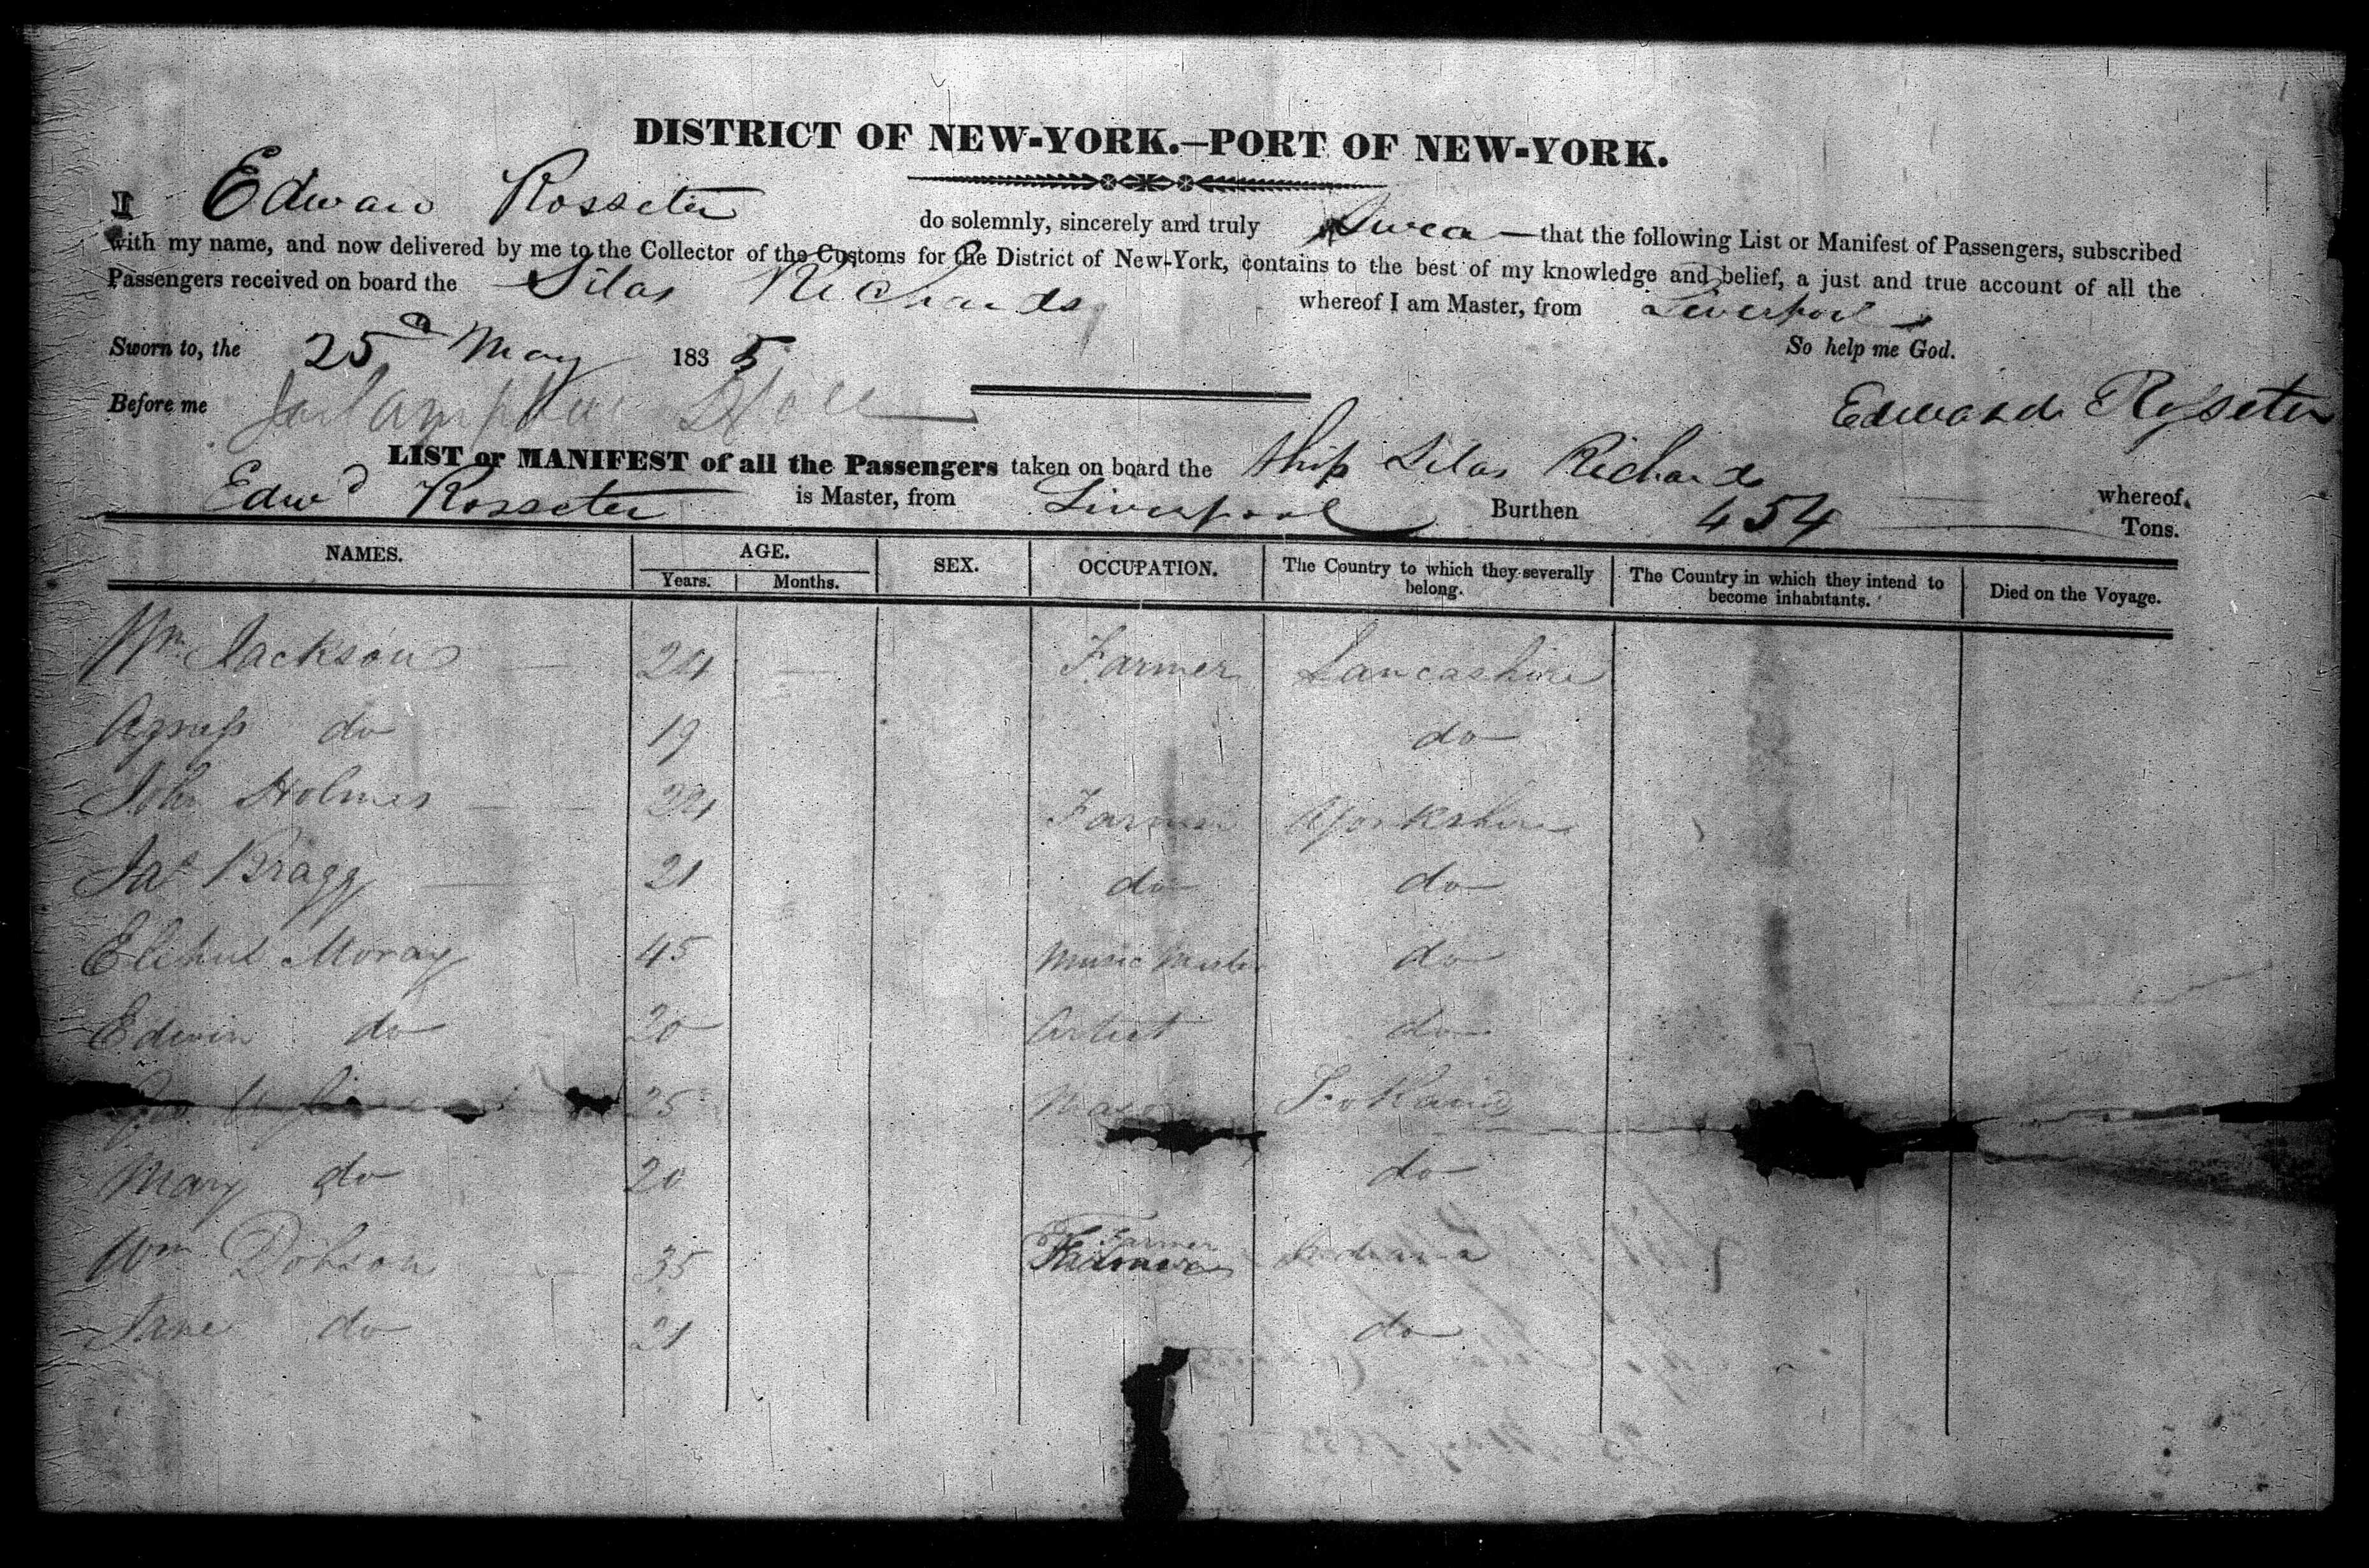 DISTRICT OF NEW-YORK.—PORT OF NEW-YORK.
I Edward Rosseter do solemnly, sincerely and truly Swear — that the following List or Manifest of Passengers, subscribed
with my name, and now delivered by me to the Collector of the Customs for the District of New-York, contains to the best of my knowledge and belief, a just and true account of all the
Passengers received on board the Silas Richards whereof I am Master, from Liverpool
Sworn to, the 25 May 1835 So help me God.
Before me Edward Rosseter
LIST or MANIFEST of all the Passengers taken on board the Ship Silas Richards whereof
Edwd Rosseter is Master, from Liverpool Burthen 454 Tons.
NAMES. AGE. SEX. OCCUPATION. The Country to which they severally belong. The Country in which they intend to become inhabitants. Died on the Voyage.
Years. Months.
Wm Jackson 24 Farmer Lancashire
Agness do 19 do
John Holmes 24 Farmer Yorkshire
Jas Bragg 21 do do
Elihu Moray 45 Music Master do
Edwin do 20 Artist do
25 Mason
Mary do 20 do
Wm Dobson 35 Farmer Indiana
Jane do 21 do